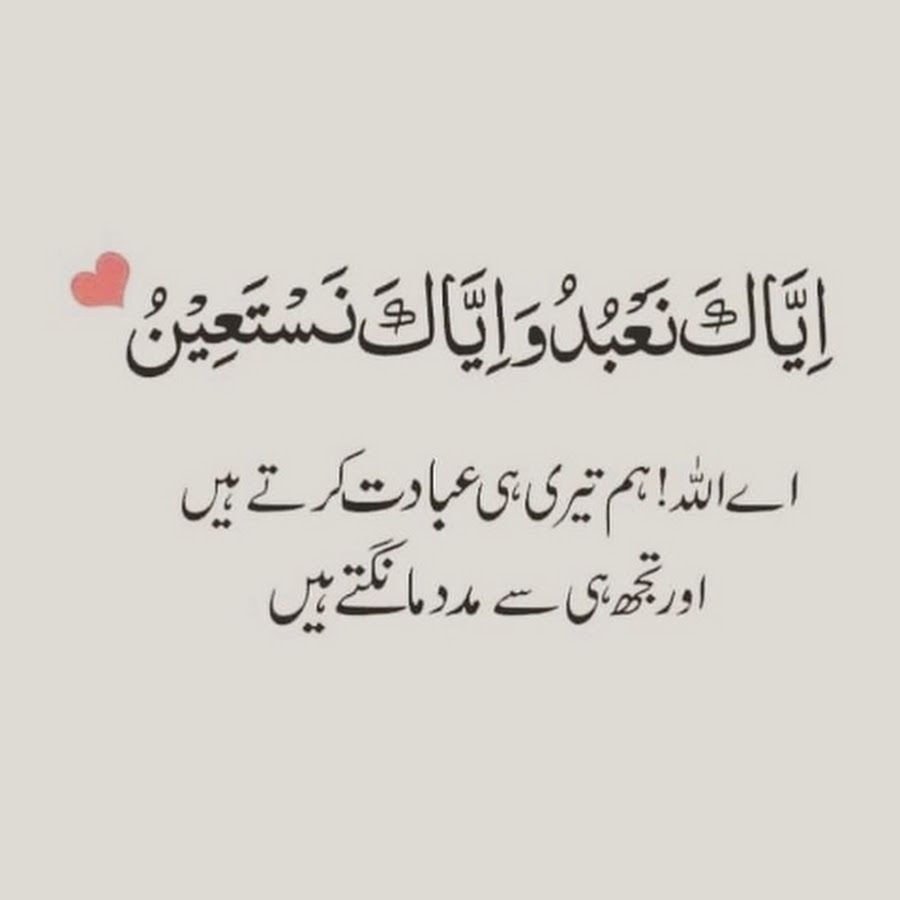 اِيَّاكَ نَعْبُدُ وَ اِيَّاكَ نَسْتَعِيْنُ
اے اللہ! ہم تیری ہی عبادت کرتے ہیں
اور تجھ ہی سے مدد مانگتے ہیں